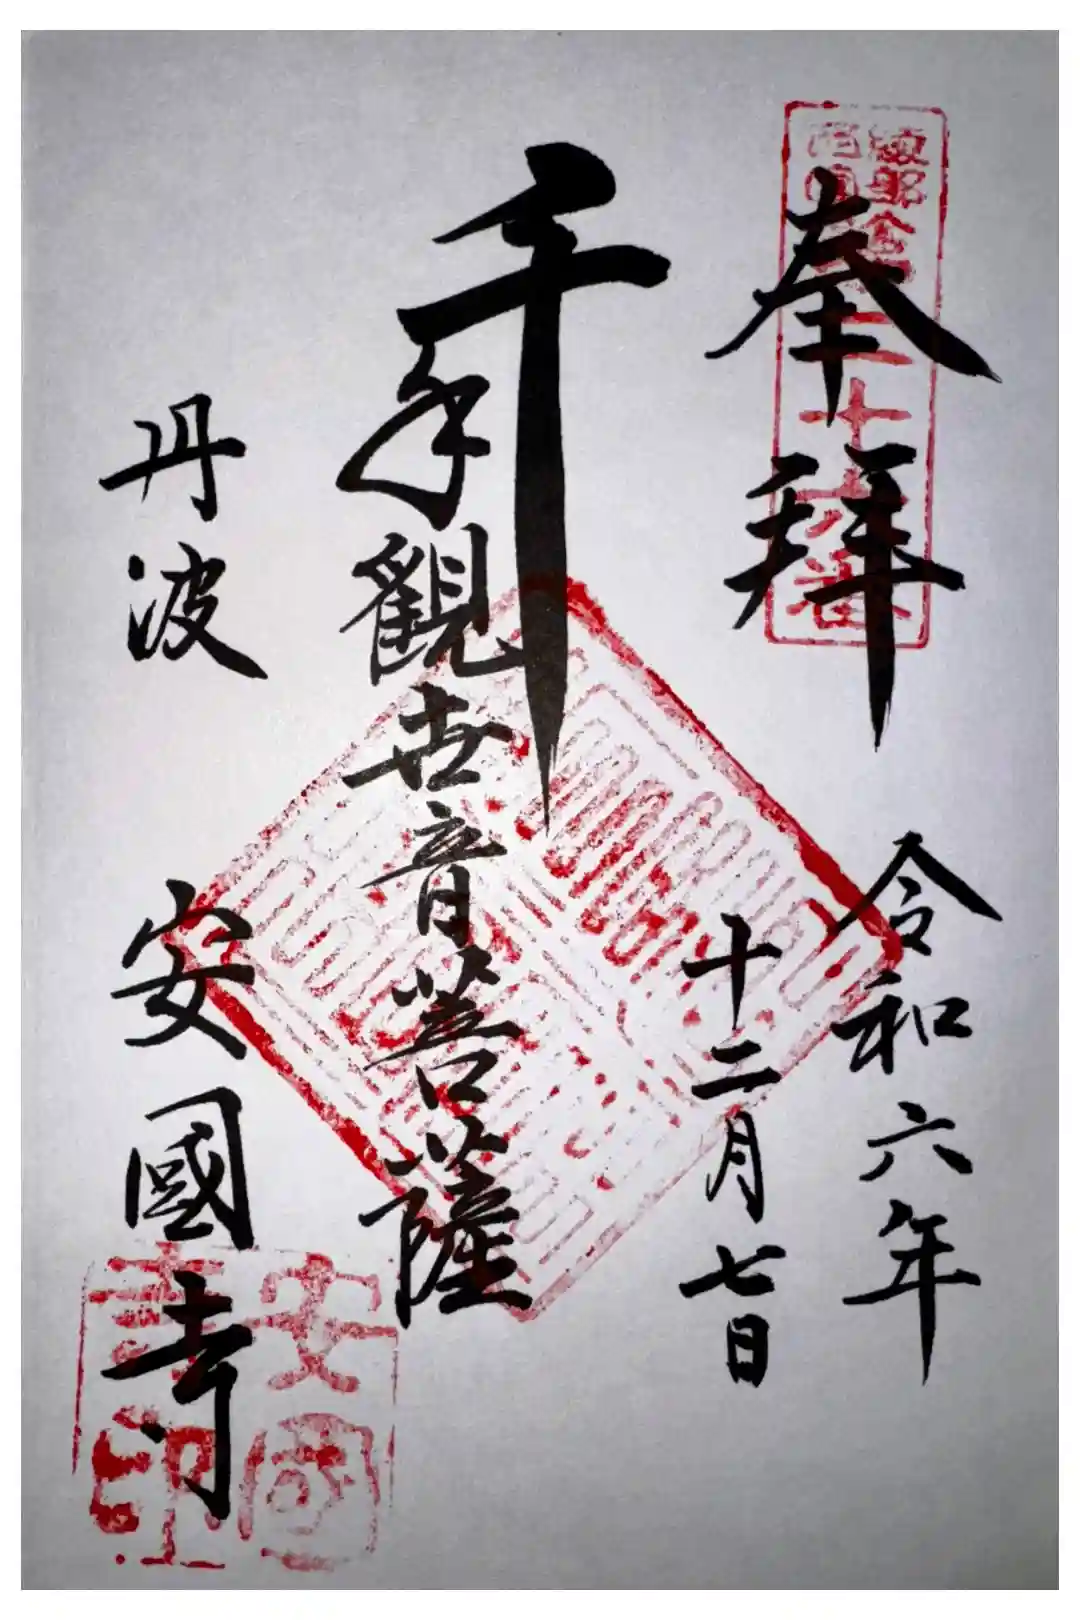 奉拝
令和六年
十二月七日
千手觀世音菩薩
丹波
安國寺
安國
寺印